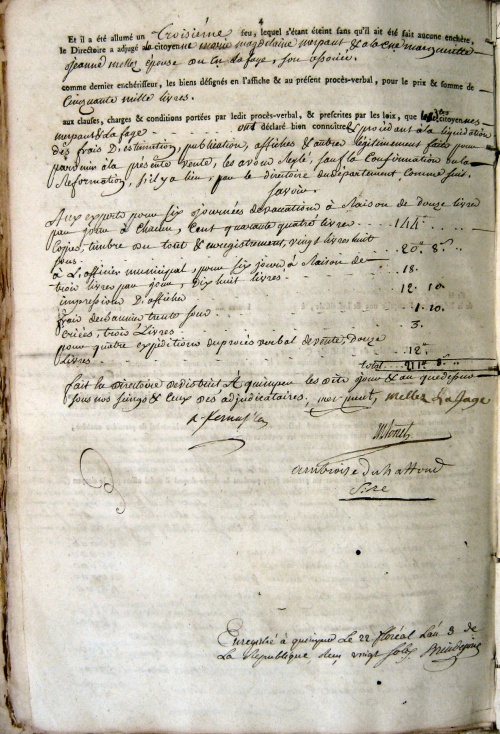 4
Et il a été allumé un troisième feu, lequel s'étant éteint sans qu'il ait été fait aucune enchère,
le Directoire a adjugé à la citoyenne marie magdelaine morpant & à la cne marguerite
jeanne mellez épouse du cn Lafage, son associée.
comme dernier enchérisseur, les biens désignés en l'affiche & au présent procès-verbal, pour le prix & somme de
Cinquante mille livres.
aux clauses, charges & conditions portées par ledit procès-verbal, & prescrites par les loix, que lesdites citoyennes
morpant & Lafage ont déclaré bien connoître & procédant à la liquidation
des frais D'estimation, publication, affiches & autres légitimement faits pour
parvenir à la présente vente, les avons reglé, sauf la Confirmation ou la
Reformation, s'il y a lieu, par le directoire du département comme suit.
Savoir.
Aux experts pour six journées de vacations à Raison de douze livres
par jour à chacun, Cent quarante quatre livres 144
Copies, timbre du tout & enregistrement, vingt livres huit
sous 20. 8.
à L'officier municipal, pour six jours à Raison de
trois livres par jour, dix huit livres 18.
impression D'affiches 12. 10.
frais de bannies trente sous 1. 10.
Criées, trois Livres 3.
pour quatre expéditions du procès verbal de vente, douze
Livres 12
total 211. 8.
fait au Directoire de district à quimper les dits jour & an que dessus
sous nos seings & Ceux des adjudicataires, morpant, mellez Lafage
ambroise du hattond
Enregistré à quimper Le 22 floréal L'an 3 de
La Republique vingt sols